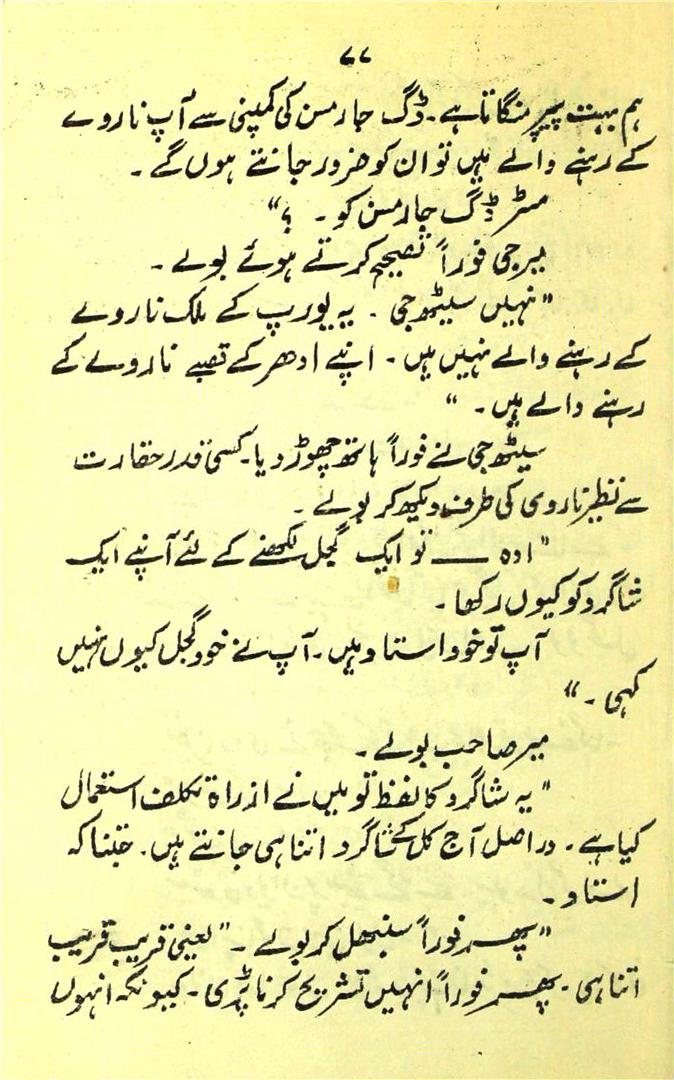 ۷۷
ہم بہت پیپر منگاتا ہے۔ ڈگ جارمسن کی کمپنی سے آپ ناروے
کے رہنے والے ہیں تو ان کو ضرور جانتے ہوں گے ۔
مسٹر ڈگ جارمسن کو ۔ ؟"
میر جی فوراً تصحیح کرتے ہوئے بولے ۔
"نہیں سیٹھ جی ۔ یہ یورپ کے ملک ناروے
کے رہنے والے نہیں ہیں ۔ اپنے ادھر کے قصبے ناروے کے
رہنے والے ہیں ۔ "
سیٹھ جی نے فوراً ہاتھ چھوڑ دیا۔ کسی قدر حقارت
سے نظیر ناروی کی طرف دیکھ کر بولے ۔
"اوہ ـــــ تو ایک گجل لکھنے کے لئے آپنے ایک
شاگرد کو کیوں رکھا ۔
آپ تو خود استاد ہیں ۔ آپ نے خود گجل کیوں نہیں
کہی ۔ "
میر صاحب بولے ۔
" یہ شاگرد کا لفظ تو میں نے ازراہ تکلف استعمال
کیا ہے ۔ دراصل آج کل کے شاگرد اتنا ہی جانتے ہیں ۔ جتنا کہ
استاد ۔
"پھر فوراً سنبھل کر بولے ۔ "یعنی قریب قریب
اتنا ہی ۔ پھر فوراً انہیں تشریح کرنا پڑی ۔ کیونکہ انہوں